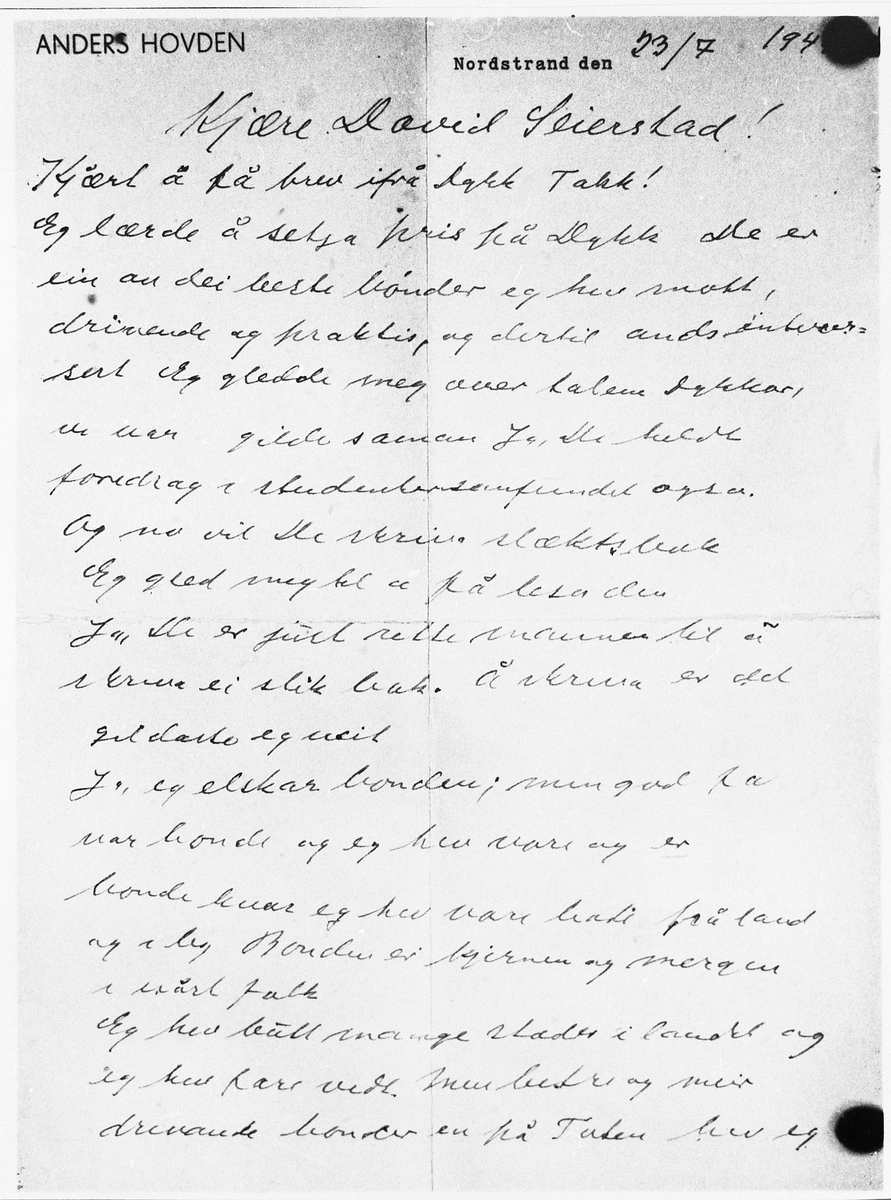 ANDERS HOVDEN
Nordstrand den 23/7 194
Kjære David Seierstad!
Kjært å få brev ifrå Dykk Takk!
Eg lærde å setja pris på Dykk De er
ein av dei beste bønder eg hev møtt,
drivende og praktis, og dertil andsinteres=
sert Eg gledde meg over talem Dykkar,
vi var gilde saman Ja, De heldt
foredrag i studentersamfundet ogsa.
Og no vil De skriva slæktsbok
Eg gled meg til a få lesa den
Ja, De er just rette mannen til å
skriva ei slik bok. Å skriva er det
gildaste eg veit
Ja, eg elskar bonden; min god fa
var bonde og eg hev vore og er
bonde kvar eg hev vore bade på land
og i by Bonden er kjernen og mergen
i vårt folk
Eg hev butt mange stader i landet og
eg hev fare vidt. Men betre og meir
drivande bønder en på Toten hev eg